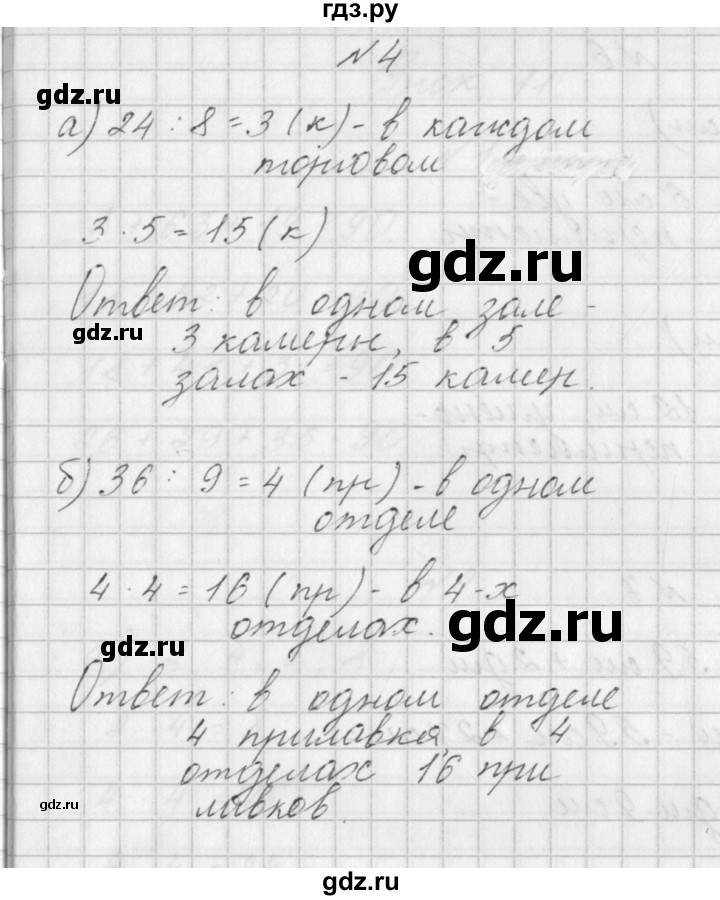 гдз.ру
№4
gdz.ru
а) 24 : 8 = 3 (к) - в каждом
торговом
3 · 5 = 15 (к)
gdz.ru
Ответ: в одном зале -
gdz.ru
3 камеры, в 5
залах - 15 камер.
б) 36 : 9 = 4 (пр) - в одном
отделе
4 · 4 = 16 (пр) - в 4-х
gdz.ru
отделах.
gdz.ru
Ответ: в одном отделе
4 прилавка, в 4
отделах 16 при
gdz.ru
лавков
gdz.ru
gdz.ru